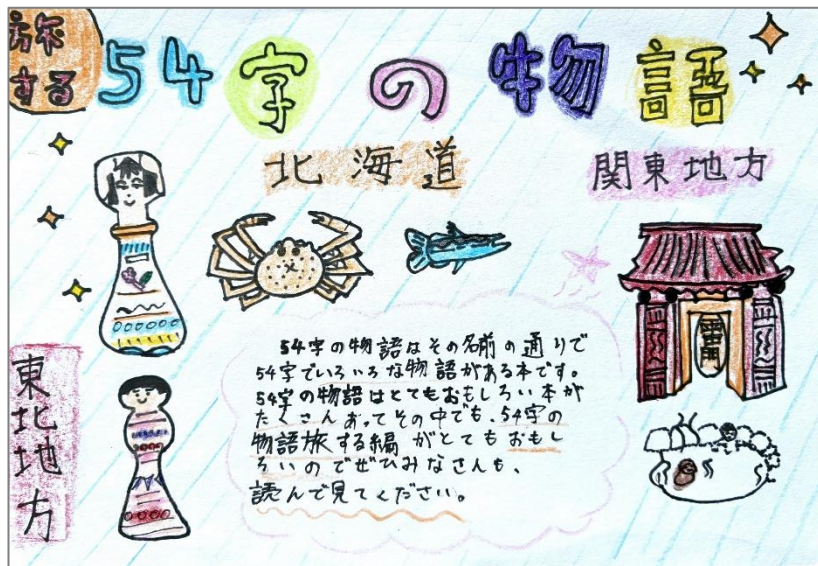 旅
する
54字の物語
北海道
関東地方
東北地方
雷門
54字の物語はその名前の通りで
54字でいろいろな物語がある本です。
54字の物語はとてもおもしろい本が
たくさんあってその中でも、54字の
物語旅する編がとてもおもし
ろいのでぜひみなさんも、
読んで見てください。